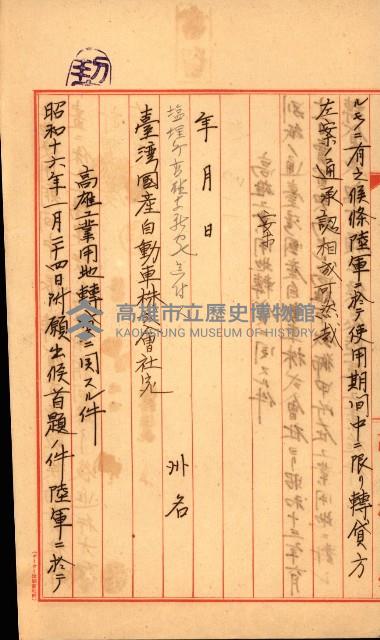 ルモノニ有之候條陸軍ニ於テ使用期間中ニ限リ轉貸方
左案ノ通承認相成可然哉
案
年 月 日
州名
臺灣國産自動車株式會社宛
高雄工業用地轉貸ニ関スル件
昭和十六年一月二十四日附願出候首題ノ件陸軍ニ於テ
高雄市立歷史博物館
KAOHSIUNG MUSEUM OF HISTORY